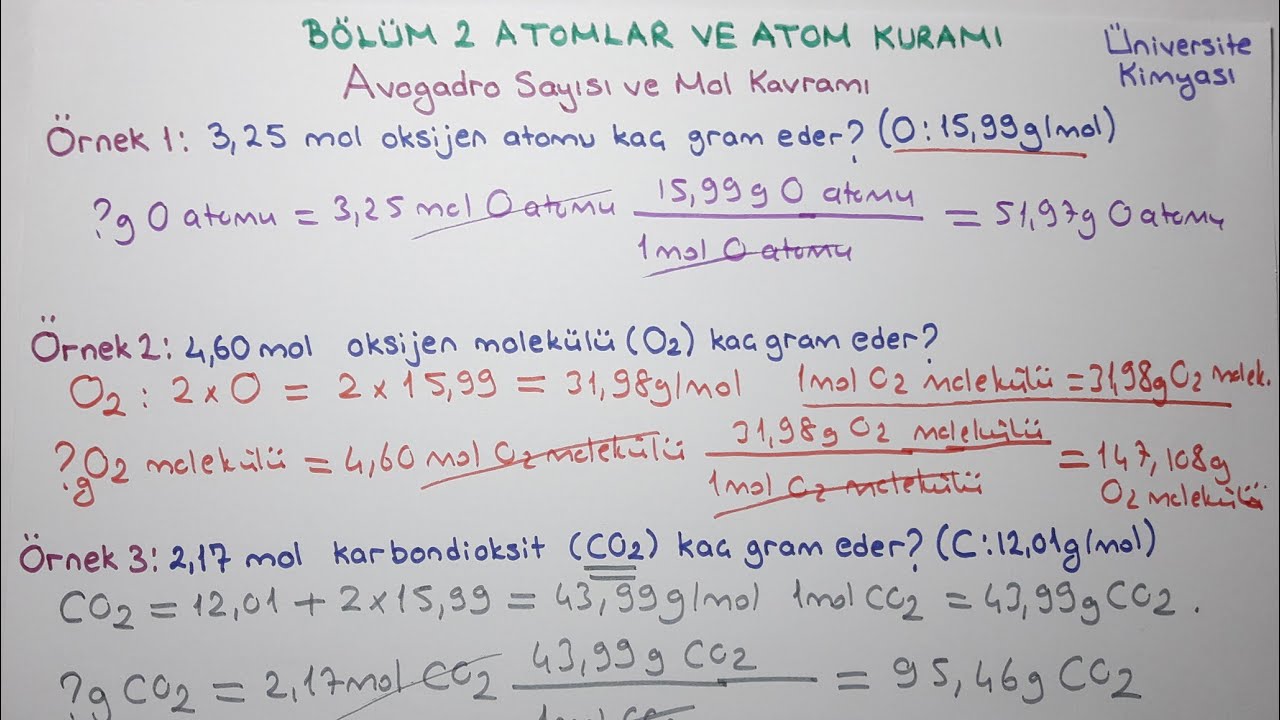 BÖLÜM 2 ATOMLAR VE ATOM KURAMI
Üniversite
Kimyası
Avogadro Sayısı ve Mol Kavramı
Örnek 1: 3,25 mol oksijen atomu kaç gram eder? (O:15,99g/mol)
?g O atomu = 3,25 mol O atomu 15,99g O atomu / 1mol O atomu = 51,97g O atomu
Örnek 2: 4,60 mol oksijen molekülü (O2) kaç gram eder?
O2 : 2 x O = 2 x 15,99 = 31,98g/mol 1mol O2 molekülü = 31,98g O2 molek.
?g O2 molekülü = 4,60 mol O2 molekülü 31,98g O2 molekülü / 1mol O2 molekülü = 147,108g O2 molekülü
Örnek 3: 2,17 mol karbondioksit (CO2) kaç gram eder? (C:12,01g/mol)
CO2 = 12,01 + 2x15,99 = 43,99g/mol 1mol CO2 = 43,99g CO2.
?g CO2 = 2,17mol CO2 43,99g CO2 / 1mol CO2 = 95,46g CO2